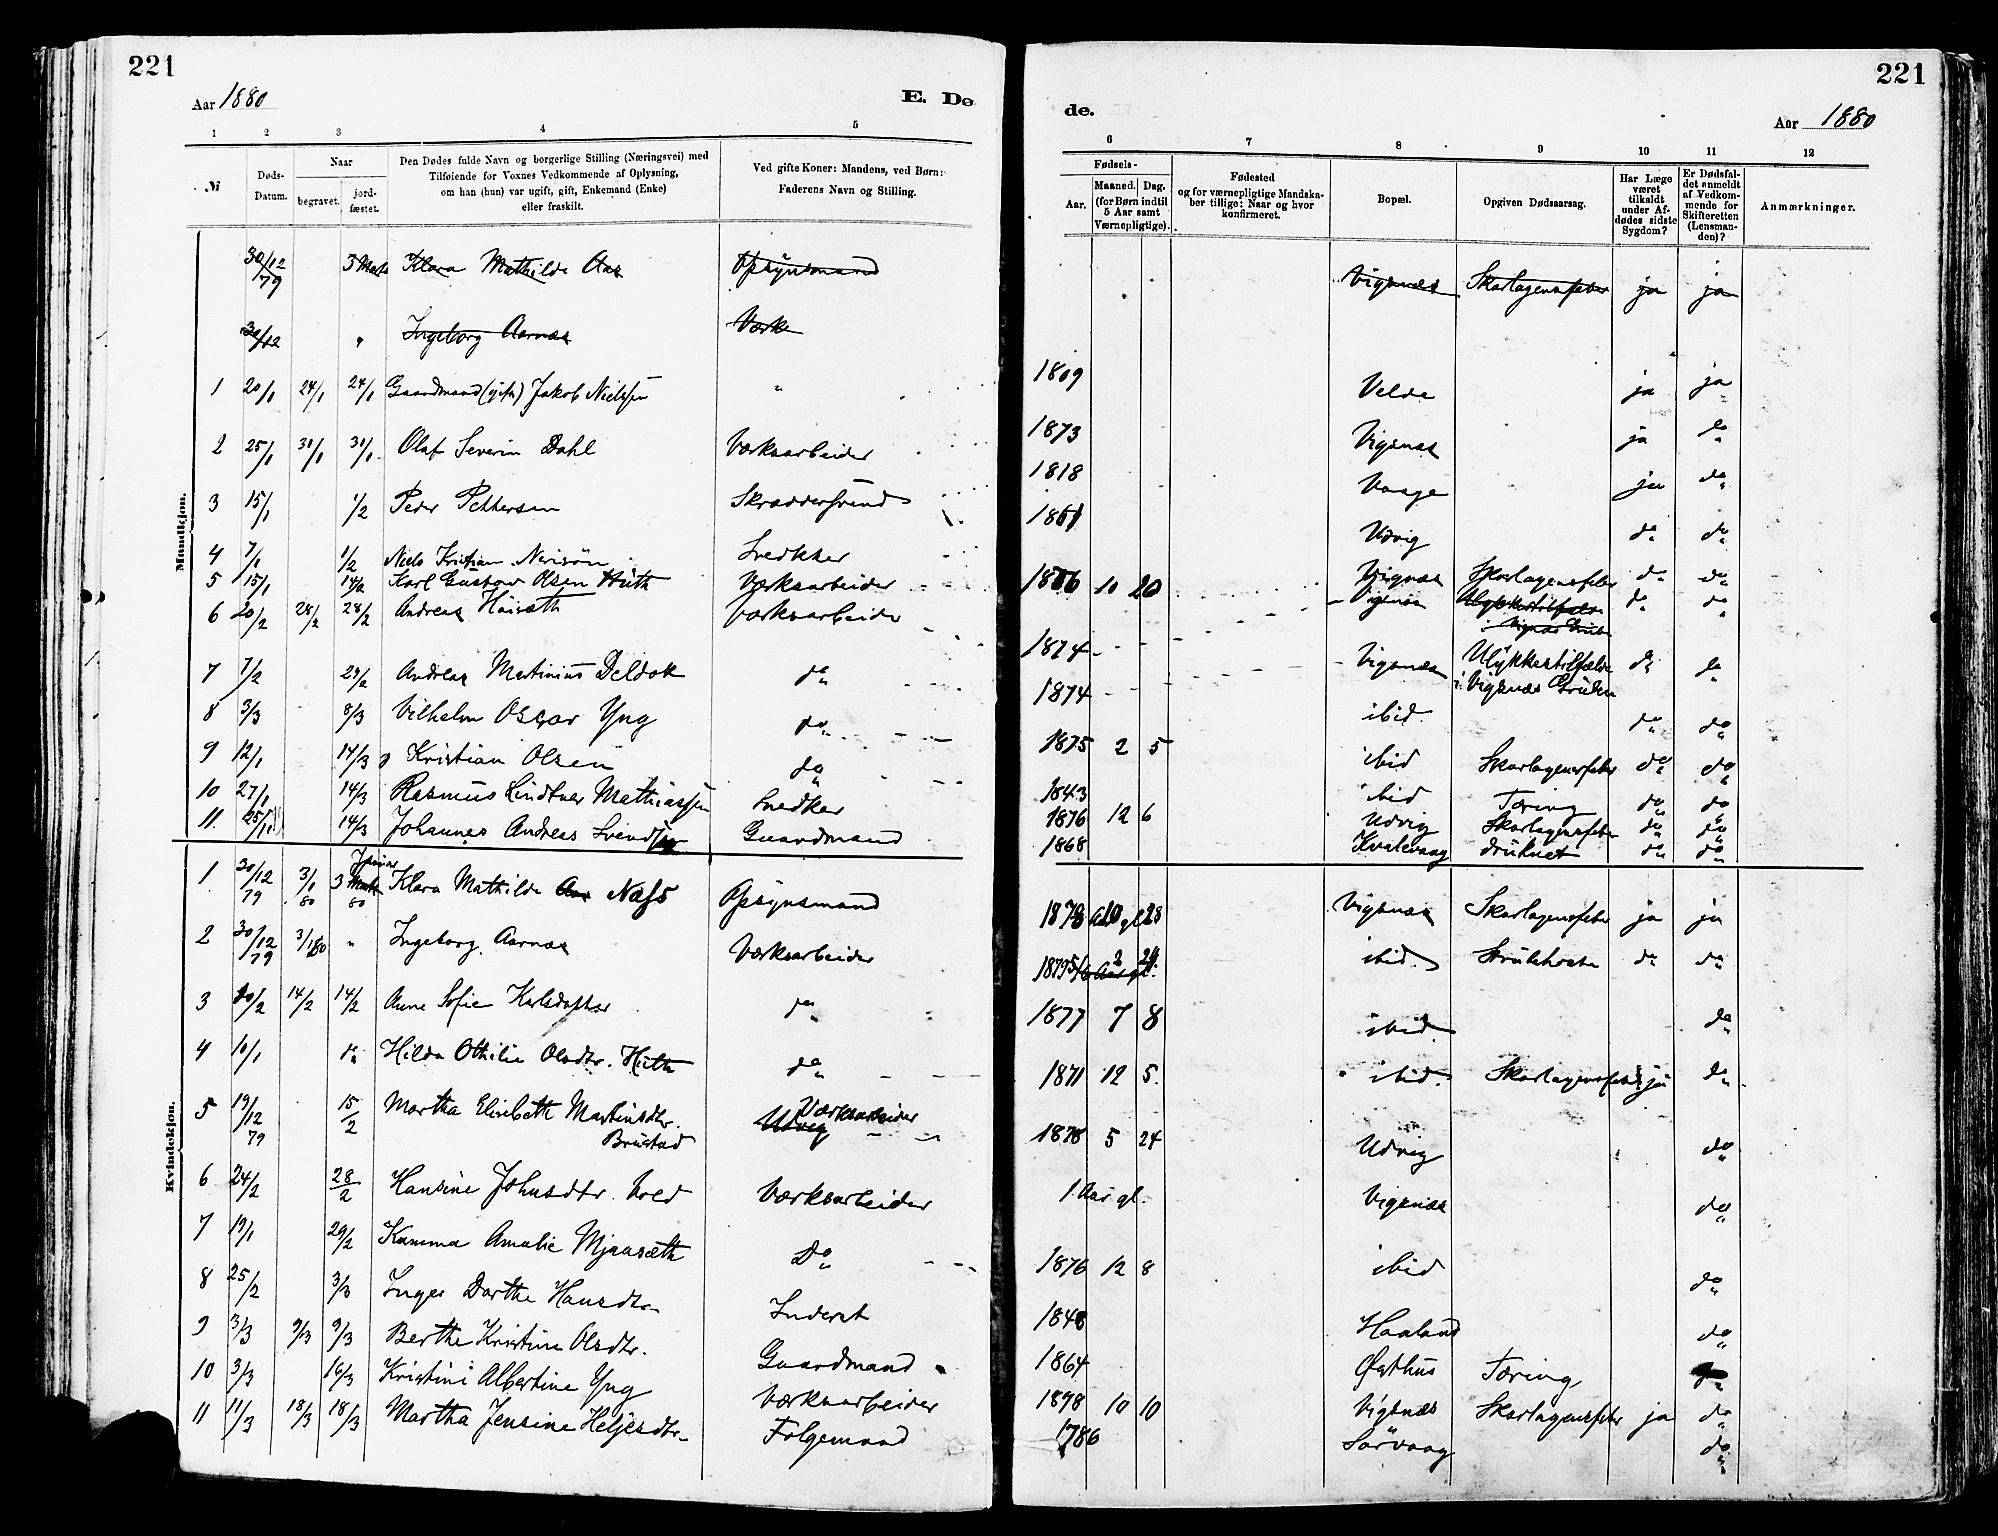 221
Aar 1880
E. Dø
1 2 3 4 5
№
Døds-Datum.
Naar
begravet.
jord-fæstet.
Den Dødes fulde Navn og borgerlige Stilling (Næringsvei) med
Tilføiende for Voxnes Vedkommende af Oplysning,
om han (hun) var ugift, gift, Enkemand (Enke)
eller fraskilt.
Ved gifte Koner: Mandens, ved Børn:
Faderens Navn og Stilling.
Mandkjøn.
30/12 79 Klara Mathilde Aas Opsynsmand
30/12 " Ingeborg Aarnæs Værks
1 20/1 24/1 24/1 Gaardmand (gift) Jakob Nielsen "
2 25/1 31/1 31/1 Olaf Severin Dahl Værksarbeider
3 15/1 1/2 Peder Pettersen Skræddersvend
4 7/1 1/2 Niels Kristian Snedker
5 15/1 14/2 Karl Gustav Olsen Hüth Værksarbeider
6 20/2 28/2 28/2 Andreas Værksarbeider
7 7/2 29/2 Andreas Martinius Deldok do
8 3/3 8/3 Vilhelm Oscar Yng do
9 12/1 14/3 Kristian Olsen do
10 27/1 14/3 Rasmus Lindtner Mathiassen Snedker
11 25/1 14/3 Johannes Andreas Svendsen Gaardmand
Kvindekjøn.
1 30/12 79 3/1 80 3 Januar 80 Klara Mathilde Aas Næss Opsynsmand
2 30/12 79 3/1 80 " Ingeborg Aarnæs Værksarbeider
3 10/2 14/2 14/2 Anne Sofie Karlsdatter do
4 10/1 do Hilda Othilie Olsdtr. Hüth do
5 19/12 79 15/2 Martha Elisabeth Martinsdtr. Værksarbeider
Brustad Udvig
6 24/2 28/2 Hansine Johnsdtr. Værksarbeider
7 19/1 29/2 Kamma Amalie Mjaasæth Do
8 25/2 3/3 Inger Dorthe Hansdtr. Inderst
9 3/3 9/3 9/3 Berthe Kristine Olsdtr. Gaardmand
10 3/3 16/3 Kristine Albertine Yng Værksarbeider
11 11/3 18/3 18/3 Martha Jensine Heljesdtr. Følgemand
221
de.
Aar 1880
6 7 8 9 10 11 12
Fødsels-
Aar.
Maaned. Dag.
(for Børn indtil
5 Aar samt
Værnepligtige).
Fødested
og for værnepligtige Mandska-
ber tillige: Naar og hvor
konfirmeret.
Bopæl.
Opgiven Dødsaarsag.
Har Læge
været
tilkaldt
under Af-
dødes sidste
Sygdom?
Er Dødsfal-
det anmeldt
af Vedkom-
mende for
Skifteretten
(Lensman-
den)?
Anmærkninger.
Vigsnæs Skarlagensfeber ja ja
1809 Velde ja ja
1873 Vigsnæs ja do
1818 Vaage ja do
1861 Udvig do do
1876 10 20 Vigsnæs Skarlagensfeber do do
Vigsnæs Ulykkestilfælde do do
i Vigsnæs Grube
1874 Vigsnæs Ulykkestilfælde do do
i Vigsnæs Gruben
1874 ibid. do do
1875 2 5 ibid Skarlagensfeber do do
1843 ibid Tæring do do
1876 12 6 Udvig Skarlagensfeber do do
1868 Kvalevaag druknet do do
1878 10 28 Vigsnæs Skarlagensfeber ja ja
1879 2 24 ibid. Strubehoste do do
1877 7 8 ibid. do
1871 12 5. ibid. Skarlagensfeber ja do
1878 5 24 Udvig do
1 Aar gl. Vigsnæs do
1876 12 8 ibid do
1848 Haaland do
1864 Østhus Tæring do
1878 10 10 Vigsnæs Skarlagensfeber ja do
1786 Sørvaag do